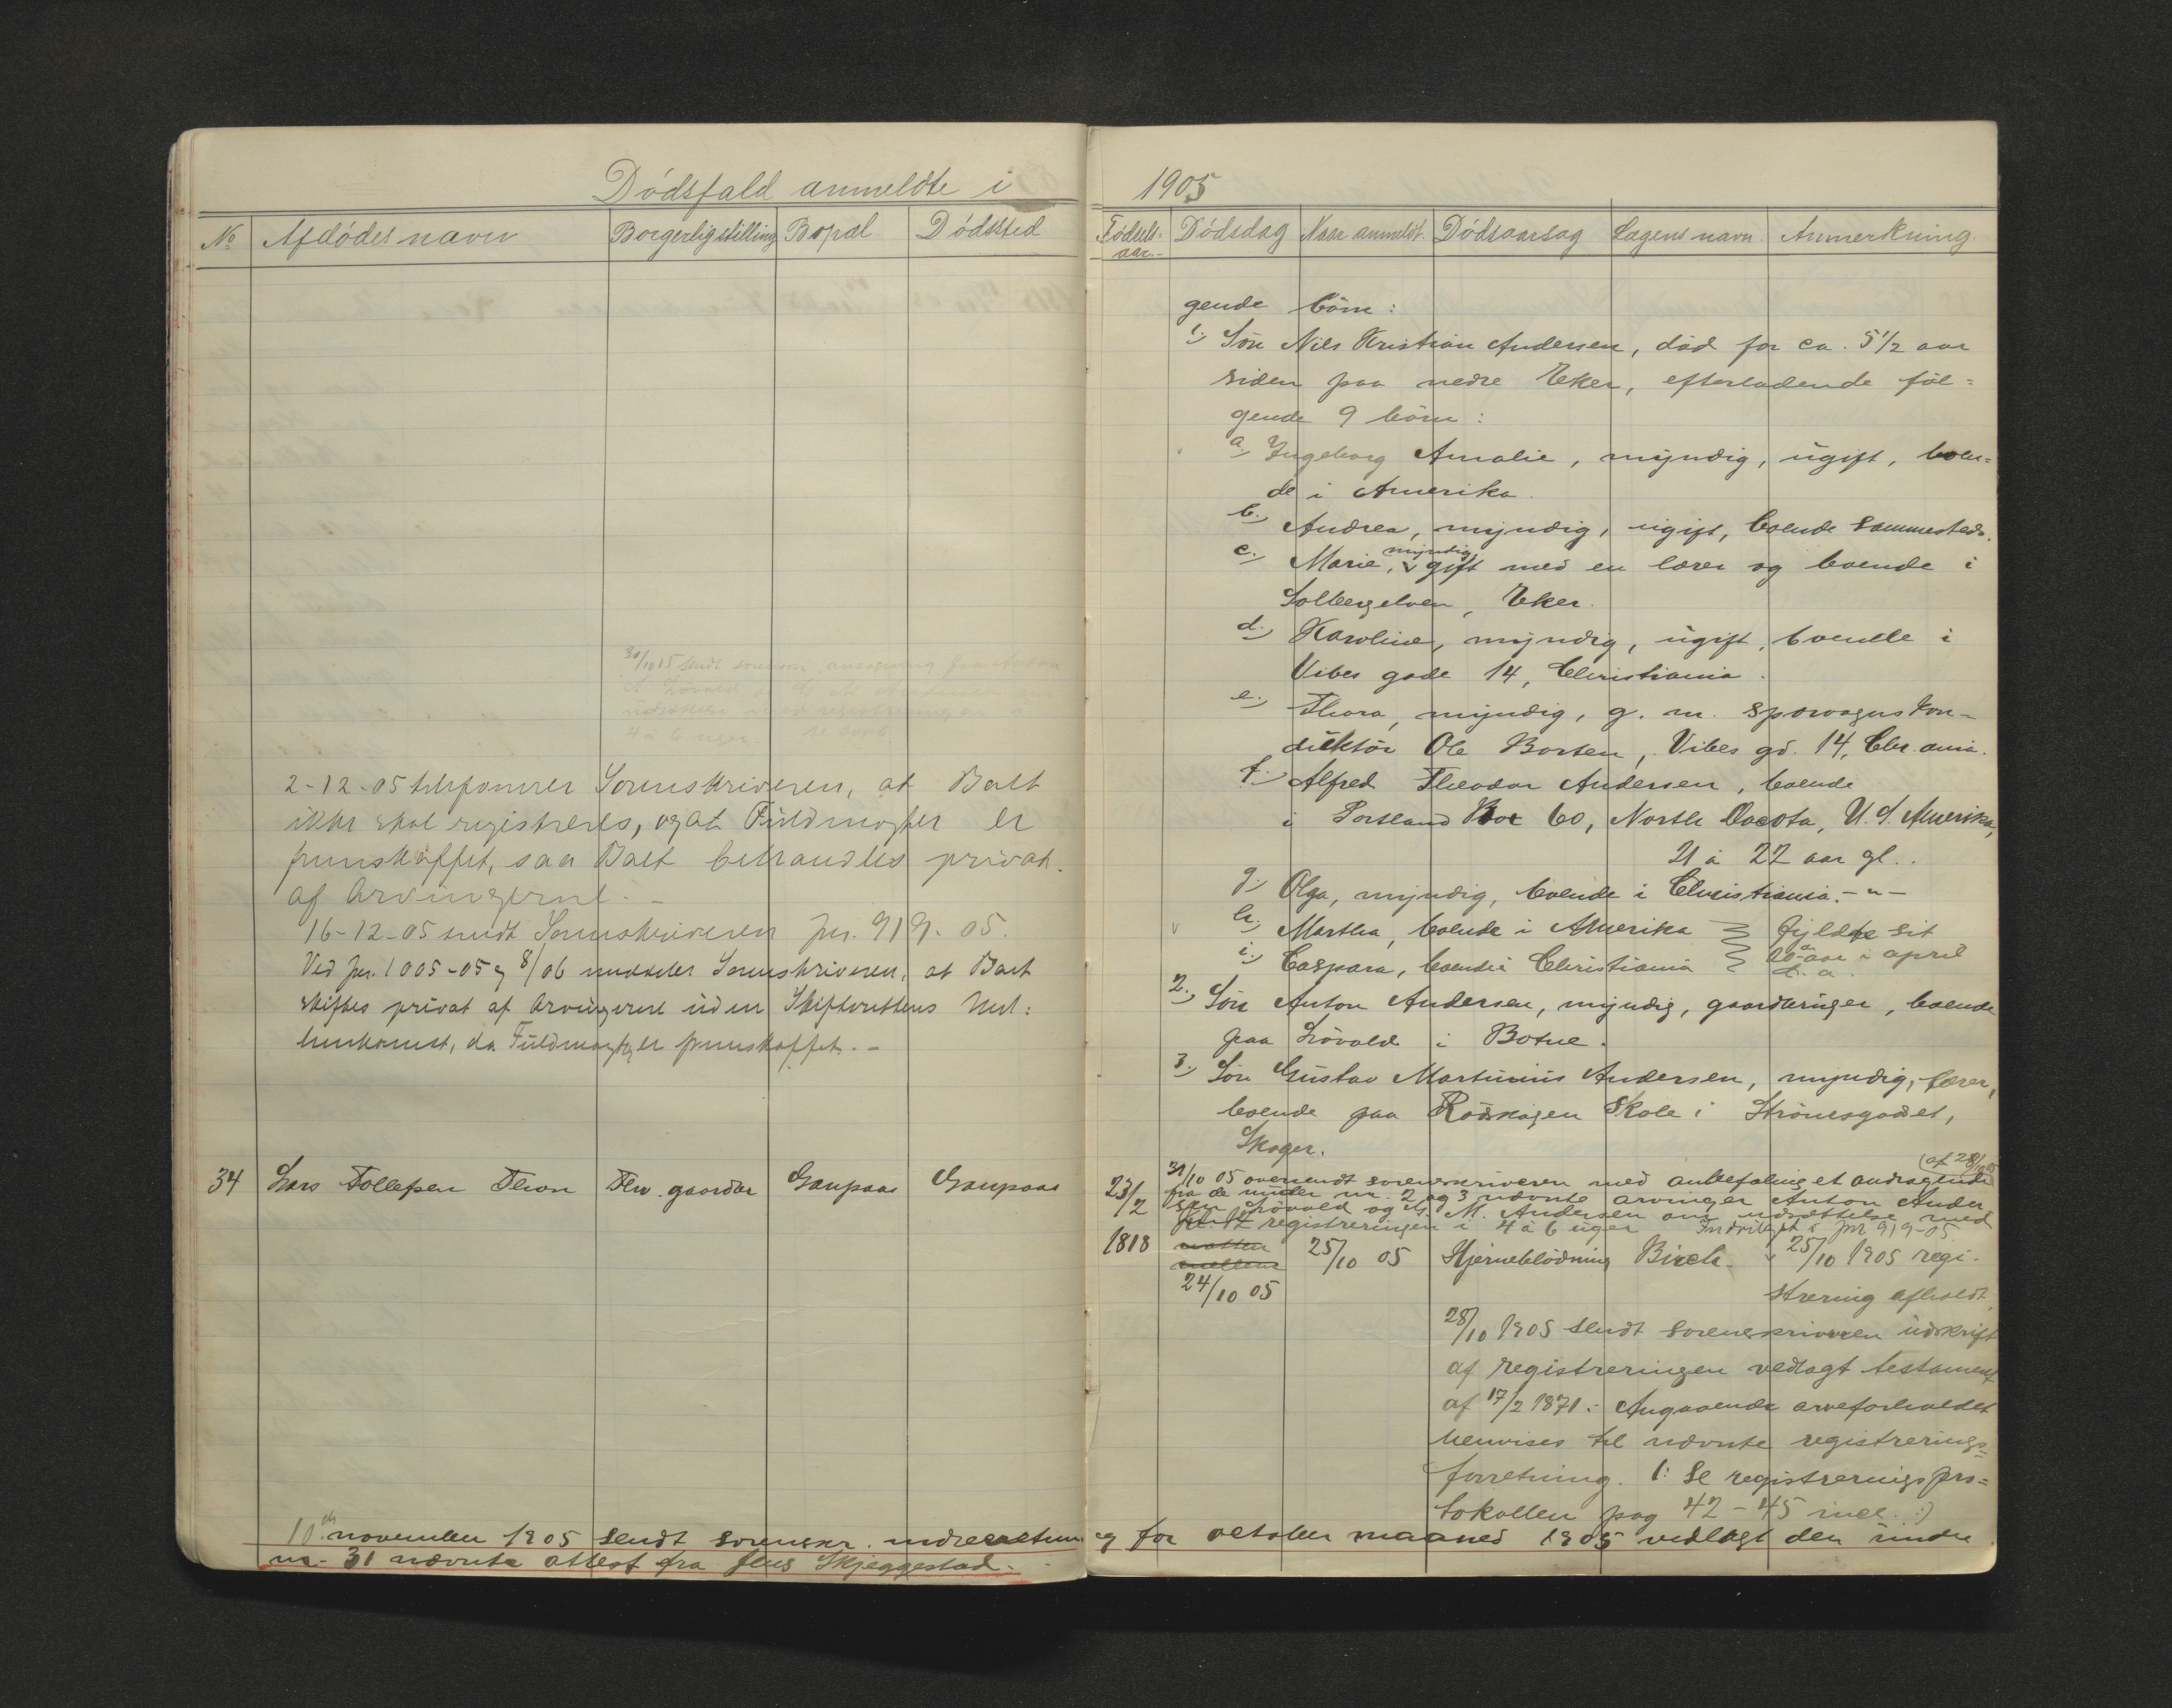 Dödsfald anmeldte i
No
Afdödes navn
Borgerlig stilling
Bopæl
Dödssted
31/10 05 sendt
4 à 6 uger
2-12-05 telefonerer Sorenskriveren, at Boet
ikke skal registreres, og at Füldmagter er
fremskaffet, saa Boet behandles privat
af Arvingerne. -
16-12-05 sendt Sorenskriveren jnr. 919-05.
Ved jnr. 1005-05 og 8/06 meddeler Sorenskriveren, at Boet
skiftes privat af Arvingerne üden Skifterettens Mel:
lemkomst, da Füldmagter er fremskaffet. -
34 Lars Tollefsen Thon Fhv. gaardbr Gaupaas Gaupaas
10 november 1905 sendt sorenskr. indberetnin
nr. 31 nævnte attest fra Jens Skjeggestad.
1905
Födsels-
aar.-
Dödsdag
Naar anmeldt.
Dödsaarsag
Lægens navn.
Anmerkning.
gende börn:
1.) Sön Nils Kristian Andersen, död for ca. 5 1/2 aar
siden paa nedre Eker, efterladende föl=
gende 9 börn:
a.) Ingeborg Amalie, myndig, ügift, boen=
de i Amerika.
b.) Andrea, myndig, ügift, boende sammesteds.
myndig,
c.) Marie, gift med en lærer og boende i
Solbergelven, Eker.
d.) Karoline, myndig, ügift, boende i
Vibes gade 14, Christiania.
e.) Thora, myndig, g. m. sporvognskon-
düktör Ole Borten, Vibes gd. 14, Chr.ania.
f.) Alfred Theodor Andersen, boende
i Portland Box 60, North Dacota, U. S. Amerika,
21 à 22 aar gl..
g.) Olga, myndig, boende i Christiania. - " -
h.) Martha, boende i Amerika fyldte sit
i.) Caspara, boende i Christiania 20 aar i april
d. a.
2.) Sön Anton Andersen, myndig, gaardbrüger, boende
paa Lövald i Botne.
3.) Sön Güstav Martinius Andersen, myndig, lærer,
boende paa Rödskogen Skole i Strömsgodset,
Skoger.
(af 28/10 05
31/10 05 oversendt sorenskriveren med anbefaling et andragende
23/2 fra de ünder nr. 2 og 3 nævnte arvinger Anton Ander
sen Lövald og G. M. Andersen om üdsættelse med
registreringen i 4 à 6 üger Indvilget i jnr 919-05.
1818 natten mellem 25/10 05 Hjerneblödning Birch. 25/10 1905 regi-
24/10 05 strering afholdt.
28/10 1905 sendt sorenskriveren üdskrift
af registreringen vedlagt testament
af 17/2 1871. Angaaende arveforholdet
henvises til nævnte registrerings=
forretning. (: Se registreringspro=
tokollen pag 42 - 45 incl. :)
g for october maaned 1905 vedlagt den ünder